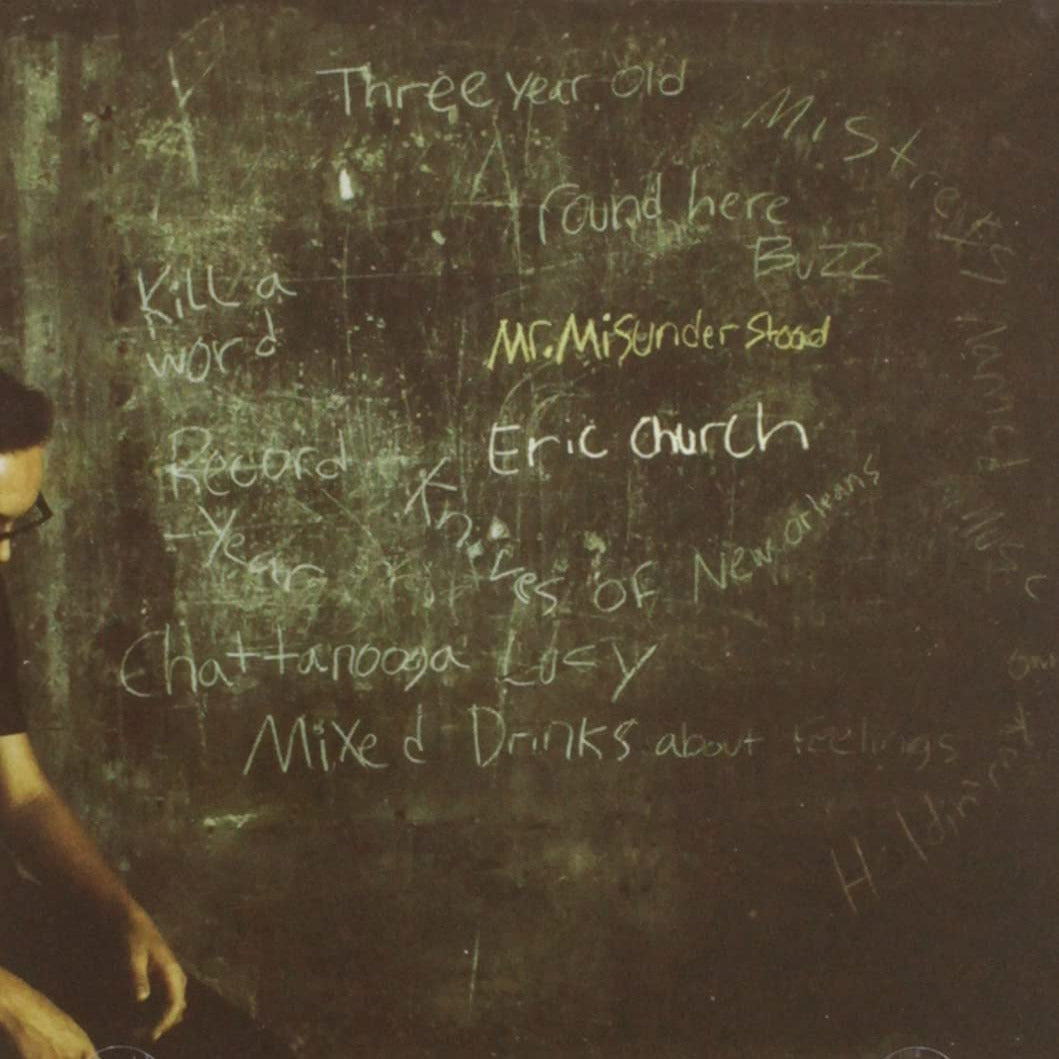 Three year old
Mistress Named Music
round here
Buzz
Kill a
word
Mr. Misunderstood
Record
Year
Eric Church
Knives of New Orleans
Chattanooga Lucy
Mixed Drinks about feelings
Holdin